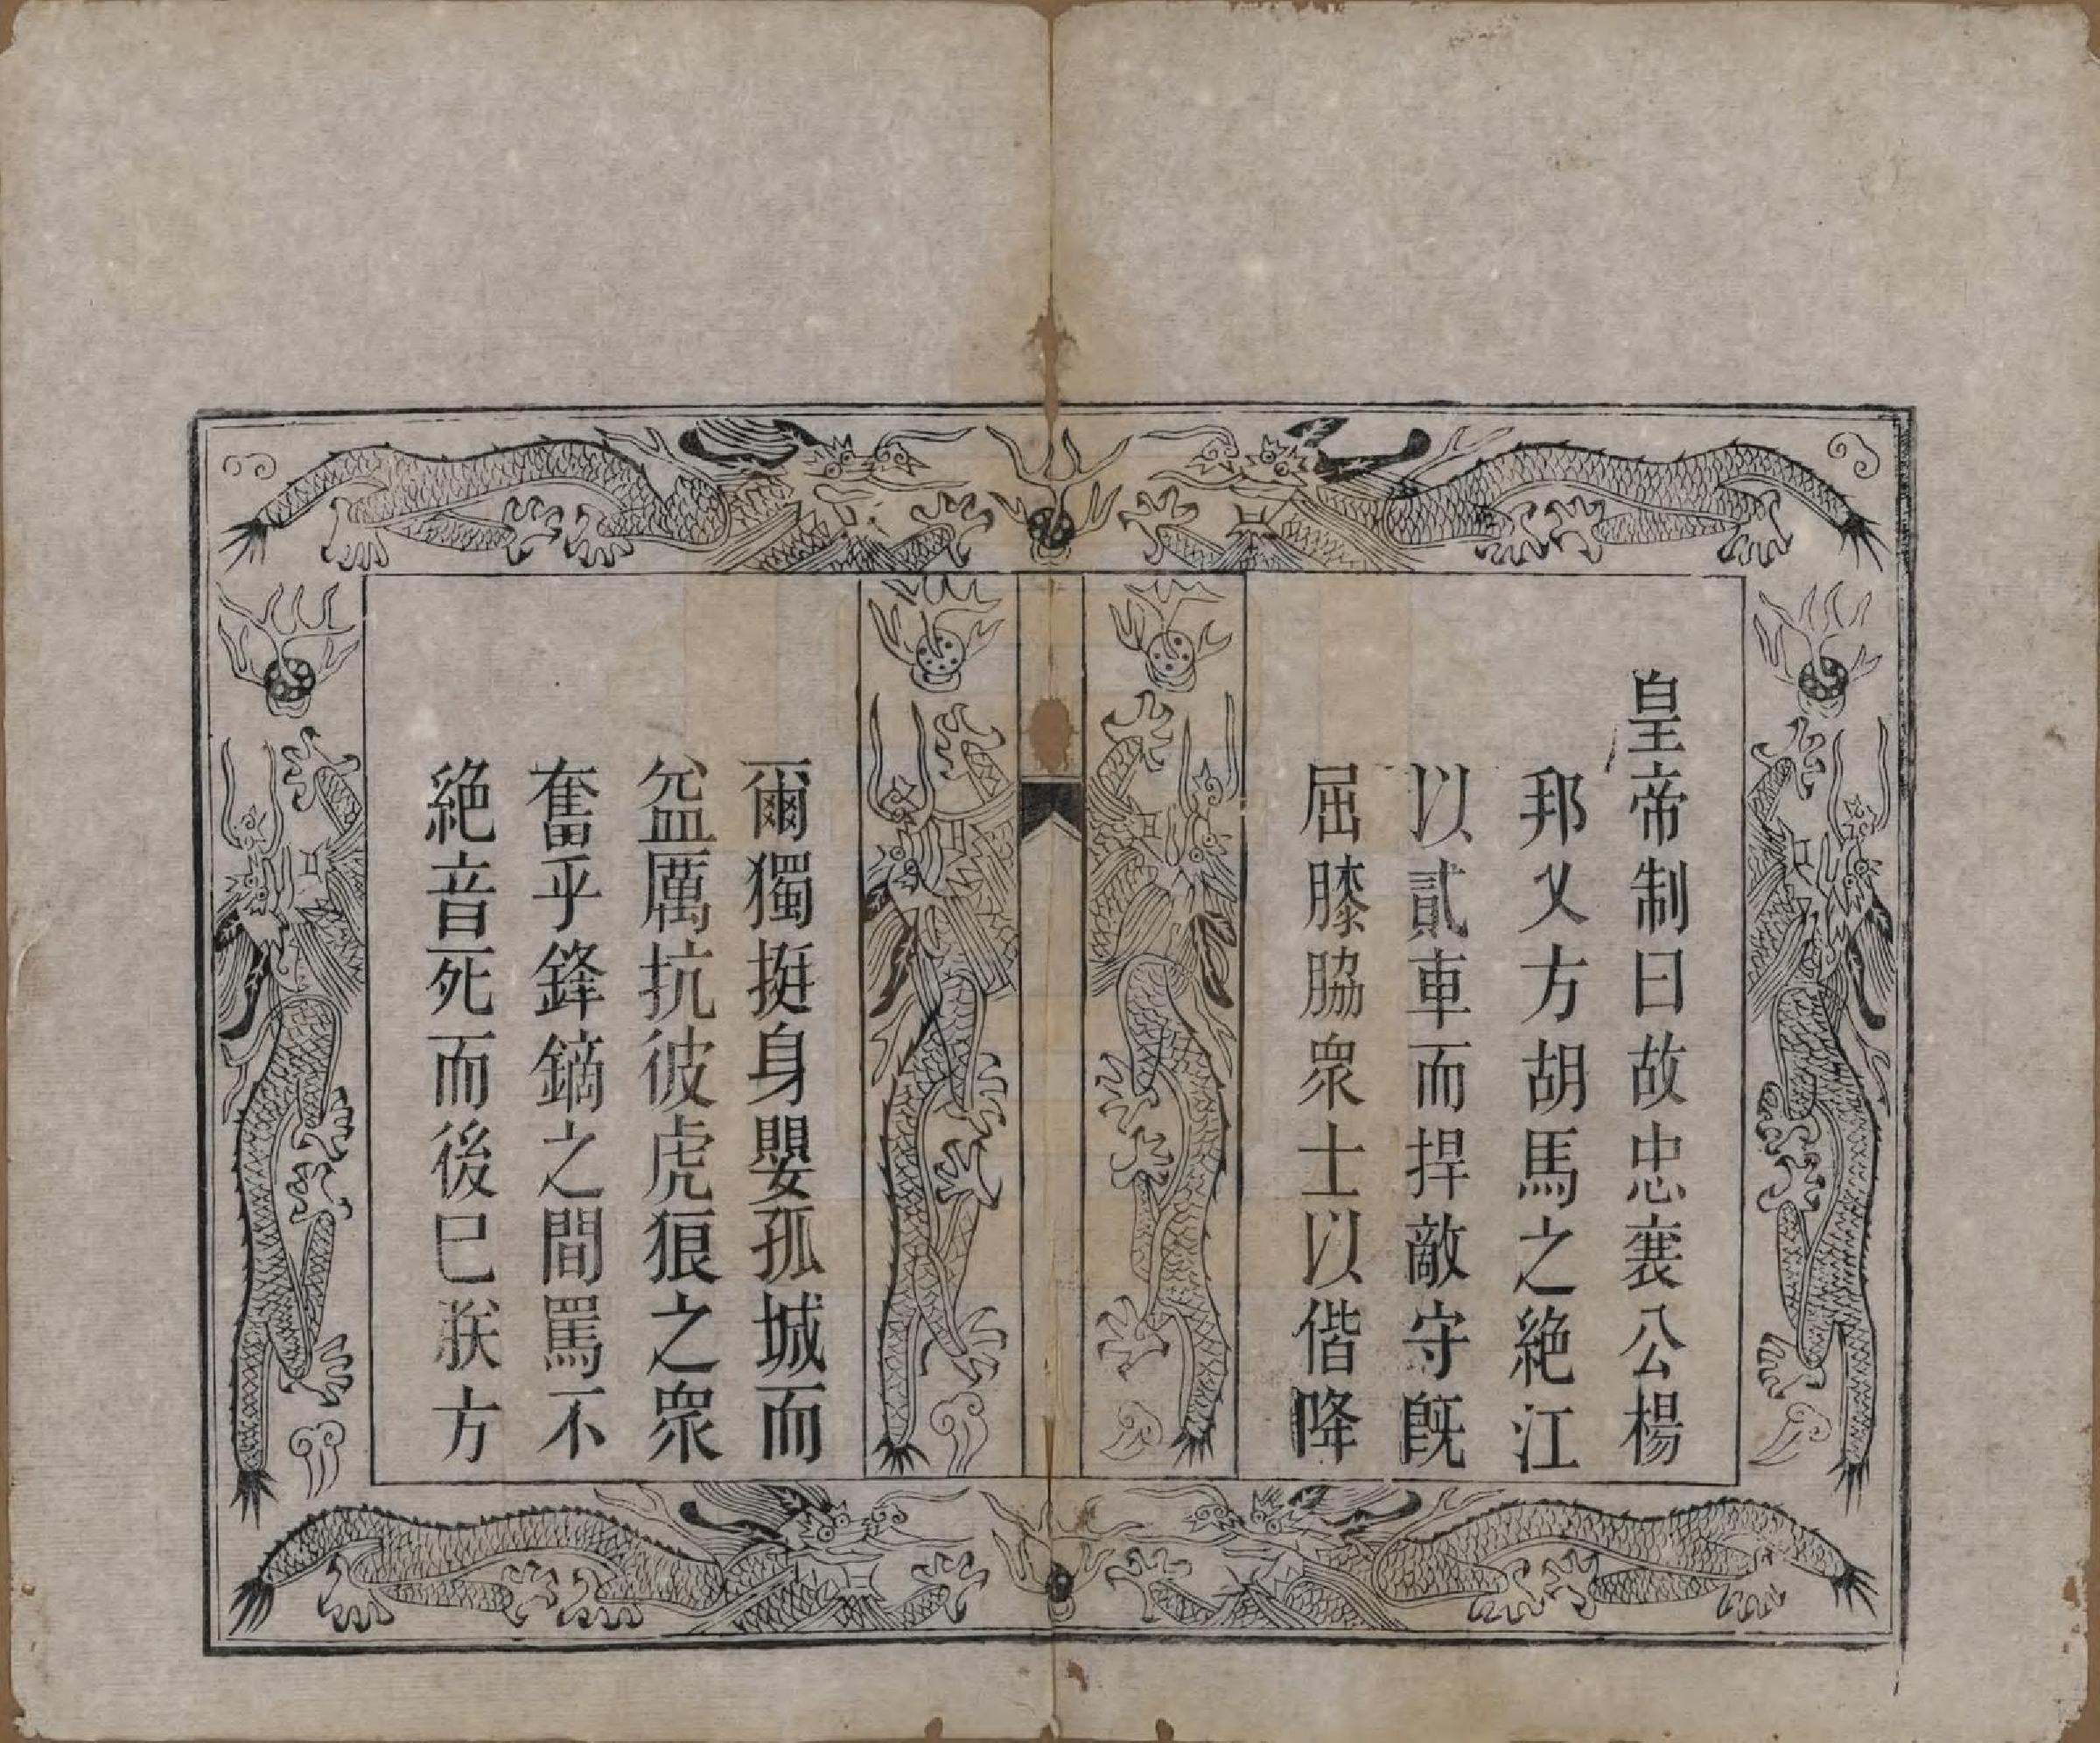 皇帝制曰故忠襄公楊
邦乂方胡馬之絶江
以貳車而捍敵守旣
屈膝脇衆士以偕降
爾獨挺身嬰孤城而
益厲抗彼虎狼之衆
奮乎鋒鏑之間罵不
絶音死而後已朕方